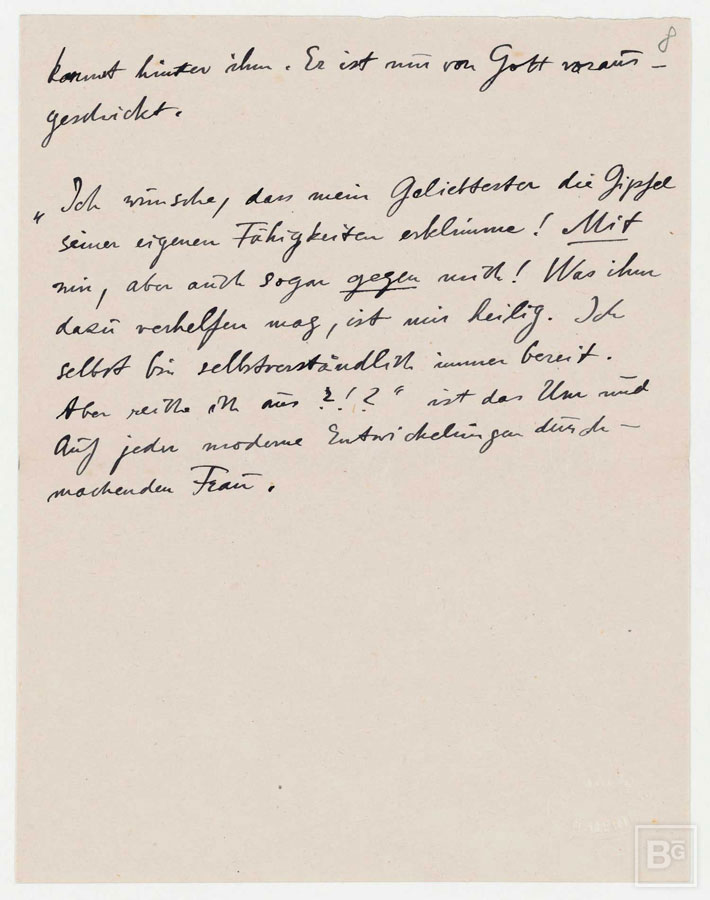 8
kommt hinter ihm. Er ist nur von Gott voraus-
geschickt.
„Ich wünsche, dass mein Geliebtester die Gipfel
seiner eigenen Fähigkeiten erklimme! Mit
mir, aber auch sogar gegen mich! Was ihm
dazu verhelfen mag, ist mir heilig. Ich
selbst bin selbstverständlich immer bereit.
Aber reiche ich aus ?!?“ ist das Um und
Auf jeder moderne Entwickelungen durch-
machenden Frau.
BG